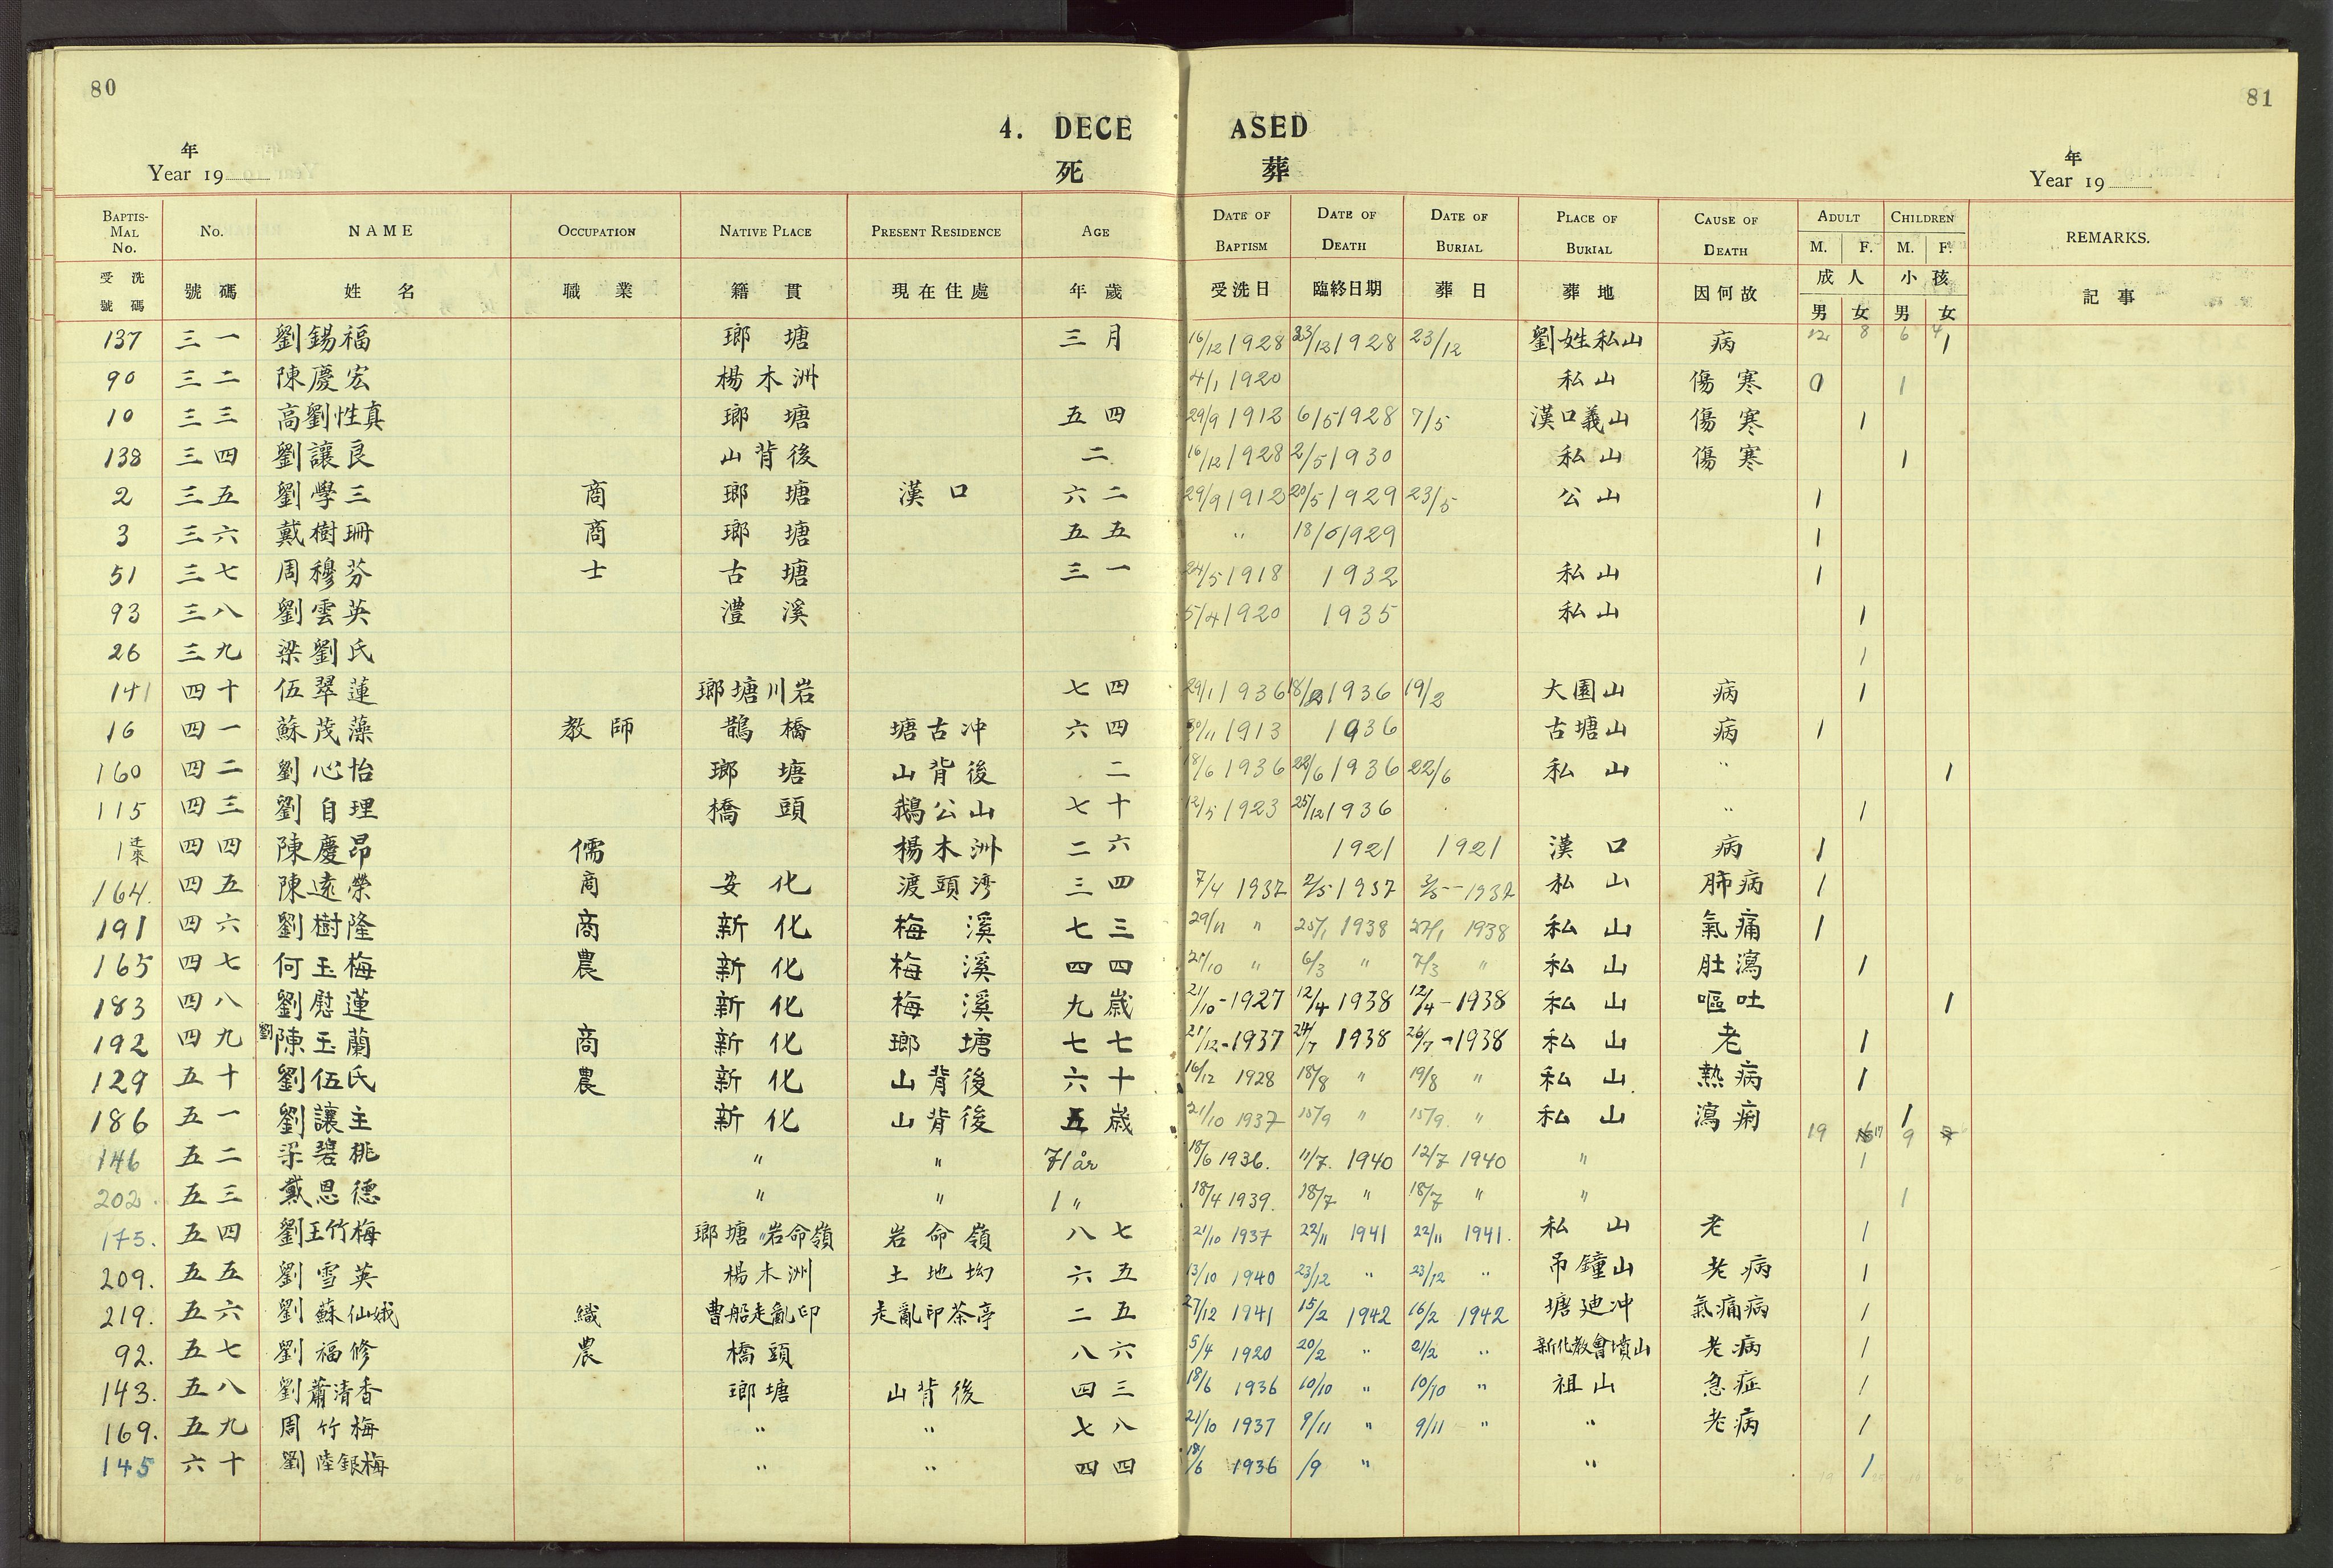 80
81
4. DECEASED
死 葬
年
Year 19
年
Year 19
BAPTIS-MAL No. No. NAME OCCUPATION NATIVE PLACE PRESENT RESIDENCE AGE DATE OF BAPTISM DATE OF DEATH DATE OF BURIAL PLACE OF BURIAL CAUSE OF DEATH ADULT M. F. CHILDREN M. F. REMARKS.
受洗號碼 號碼 姓名 職業 籍貫 現在住處 年歲 受洗日 臨終日期 葬日 葬地 因何故 成人 男 女 小孩 男 女 記事
12 8 6 4
137 三一 劉錫福 瑯塘 三月 16/12 1928 23/12 1928 23/12 劉姓私山 病 1
90 三二 陳慶宏 楊木洲 4/1 1920 私山 傷寒 0 1
10 三三 高劉性真 瑯塘 五四 29/9 1912 6/5 1928 7/5 漢口義山 傷寒 1
138 三四 劉讓良 山背後 二 16/12 1928 2/5 1930 私山 傷寒 1
2 三五 劉學三 商 瑯塘 漢口 六二 29/9 1912 20/5 1929 23/5 公山 1
3 三六 戴樹珊 商 瑯塘 五五 " 1929 1
51 三七 周穆芬 士 古塘 三一 24/5 1918 1932 私山 1
93 三八 劉雲英 澧溪 5/4 1920 1935 私山 1
26 三九 梁劉氏 1
141 四十 伍翠蓮 瑯塘川岩 七四 29/1 1936 18/2 1936 19/2 大園山 病 1
16 四一 蘇茂藻 教師 鵲橋 塘古冲 六四 30/11 1913 1936 古塘山 病 1
160 四二 劉心怡 瑯塘 山背後 二 18/6 1936 22/6 1936 22/6 私山 " 1
115 四三 劉自理 橋頭 鵝公山 七十 12/5 1923 25/12 1936 " 1
1 四四 陳慶昂 儒 楊木洲 二六 1921 1921 漢口 病 1
164. 四五 陳遠榮 商 安化 渡頭湾 三四 7/4 1937 2/5 1937 3/5 - 1937 私山 肺病 1
191 四六 劉樹隆 商 新化 梅溪 七三 29/11 " 25/1 1938 27/1 1938 私山 氣痛 1
165 四七 何玉梅 農 新化 梅溪 四四 21/10 " 6/3 " 7/3 " 私山 肚瀉 1
183 四八 劉慰蓮 新化 梅溪 九歲 21/10 - 1927 12/4 1938 12/4 - 1938 私山 嘔吐 1
192 四九 劉陳玉蘭 商 新化 瑯塘 七七 21/12 - 1937 24/7 1938 26/7 - 1938 私山 老 1
129 五十 劉伍氏 農 新化 山背後 六十 16/12 1928 18/8 " 19/8 " 私山 熱病 1
186 五一 劉讓主 新化 山背後 五歲 21/10 1937 15/9 " 15/9 " 私山 瀉痢 1
19 17 9
146 五二 梁碧桃 " " 71 år 18/6 1936. 11/7. 1940 12/7 1940 " 1
202. 五三 戴恩德 " " 1 " 18/4 1939. 18/7 " 18/7 " " 1
175. 五四 劉王竹梅 瑯塘"岩命嶺 岩命嶺 八七 21/10 1937 22/11 1941 22/11 1941. 私山 老 1
209. 五五 劉雪英 楊木洲 土地坳 六五 13/10 1940 23/12 " 23/12 " 吊鐘山 老病 1
219. 五六 劉蘇仙娥 織 曹船走亂印 走亂印茶亭 二五 27/12 1941 15/2 1942 16/2 1942 塘廸冲 氣痛病 1
92. 五七 劉福修 農 橋頭 八六 5/4 1920 20/2 " 21/2 " 新化教會墳山 老病 1
143. 五八 劉蕭清香 瑯塘 山背後 四三 18/6 1936 10/10 " 10/10 " 祖山 急症 1
169. 五九 周竹梅 " " 七八 21/10 1937 9/11 " 9/11 " " 老病 1
145 六十 劉陸銀梅 " " 四四 18/6 1936 /9 " " 1